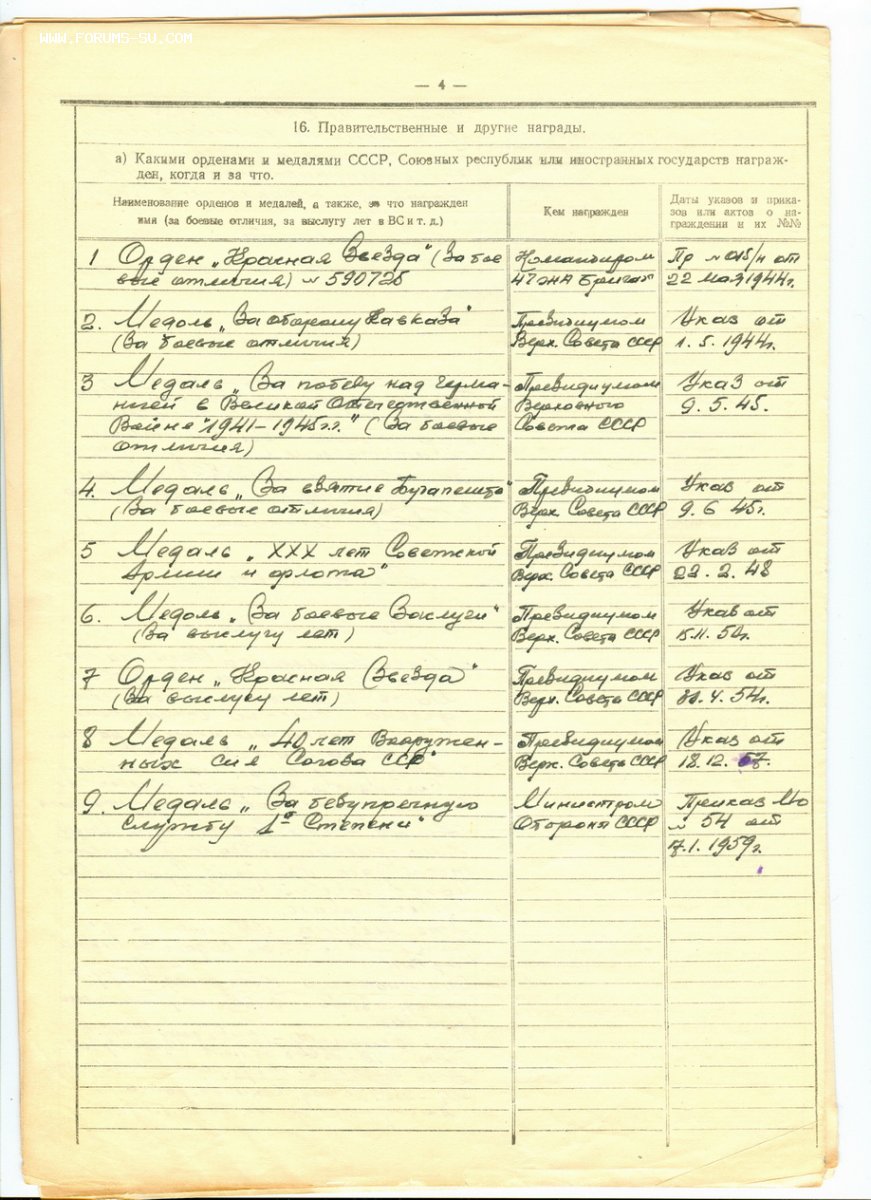 WWW.FORUMS-SU.COM
— 4 —
16. Правительственные и другие награды.
а) Какими орденами и медалями СССР, Союзных республик или иностранных государств награж-
ден, когда и за что.
Наименование орденов и медалей, а также, за что награжден
имя (за боевые отличия, за выслугу лет в ВС и т. д.)
Кем награжден
Даты указов и прика-
зов или актов о на-
граждении и их №№
1 Орден „Красная Звезда" (За бое
вые отличия) № 590726
Командиром
Бригады
Пр № 015/н от
22 мая 1944г.
2. Медаль „За оборону Кавказа"
(За боевые отличия)
Президиумом
Верх. Совета СССР
Указ от
1. 5. 1944г.
3 Медаль „За победу над Герма-
нией в Великой Отечественной
Войне "1941-1945г.г." (За боевые
отличия)
Президиумом
Верховного
Совета СССР
Указ от
9. 5. 45.
4. Медаль „За взятие Будапешта"
(За боевые отличия)
Президиумом
Верх. Совета СССР
Указ от
9. 6 45г.
5 Медаль „XXX лет Советской
Армии и флота"
Президиумом
Верх. Совета СССР
Указ от
22. 2. 48
6. Медаль „За боевые Заслуги"
(За выслугу лет)
Президиумом
Верх. Совета СССР
Указ от
15.11. 50г.
7 Орден „Красная Звезда"
(За выслугу лет)
Президиумом
Верх. Совета СССР
Указ от
30. 4. 54г.
8 Медаль „40 лет Вооружен-
ных Сил Союза ССР"
Президиумом
Верх. Совета СССР
Указ от
18. 12. 57.
9. Медаль „За безупречную
службу 1й Степени"
Министром
Обороны СССР
Приказ МО
№ 54 от
7.1. 1959г.